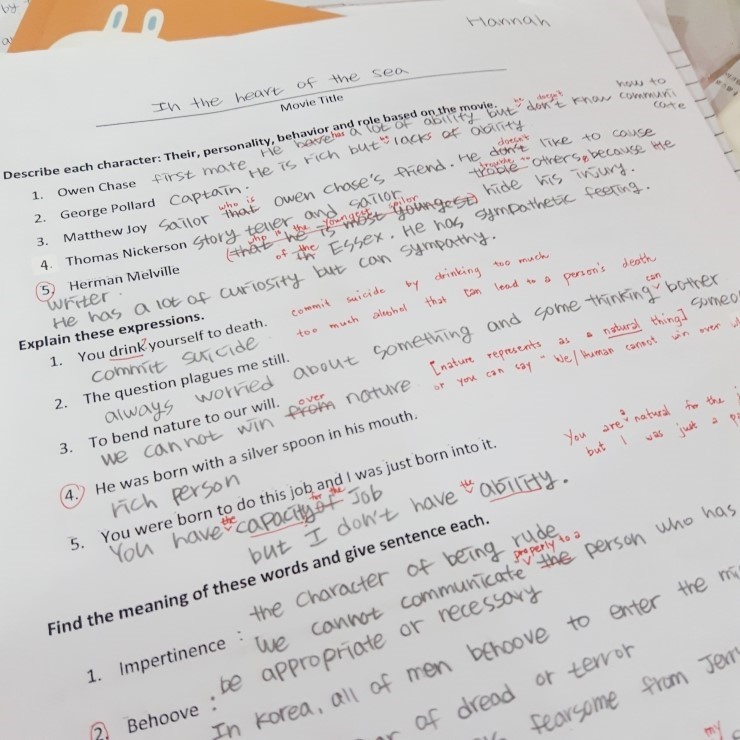 by
Hannah
In the heart of the sea
Movie Title
Describe each character: Their, personality, behavior and role based on the movie.
1. Owen Chase first mate. He have has a lot of ability but he doesn't don't know how to communicate
2. George Pollard Captain. He is rich but he lacks of ability
3. Matthew Joy Sailor that who is Owen Chase's friend. He don't doesn't like to cause
trouble others, because He
hide his injury.
4. Thomas Nickerson Story teller and sailor
(that he is most youngest) who is the youngest sailor
of the in Essex. He has sympathetic feeling.
5. Herman Melville
writer.
He has a lot of curiosity but can sympathy.
Explain these expressions.
1. You drink yourself to death. commit suicide by drinking too much
commit suicide. too much alcohol that can lead to a person's death
2. The question plagues me still.
always worried about something and some thinking can bother
3. To bend nature to our will. [nature represents as a natural thing]
we can not win from over nature. or you can say "We/Human cannot win over
4. He was born with a silver spoon in his mouth.
rich person
5. You were born to do this job and I was just born into it. You are a natural for the
You have the capacity of for the Job but I was just a
but I don't have the ability.
Find the meaning of these words and give sentence each.
1. Impertinence : the character of being rude
we cannot communicate properly to a the person who has
2. Behoove : be appropriate or necessary
In Korea, all of men behoove to enter the
of dread or terror
fearsome from
my